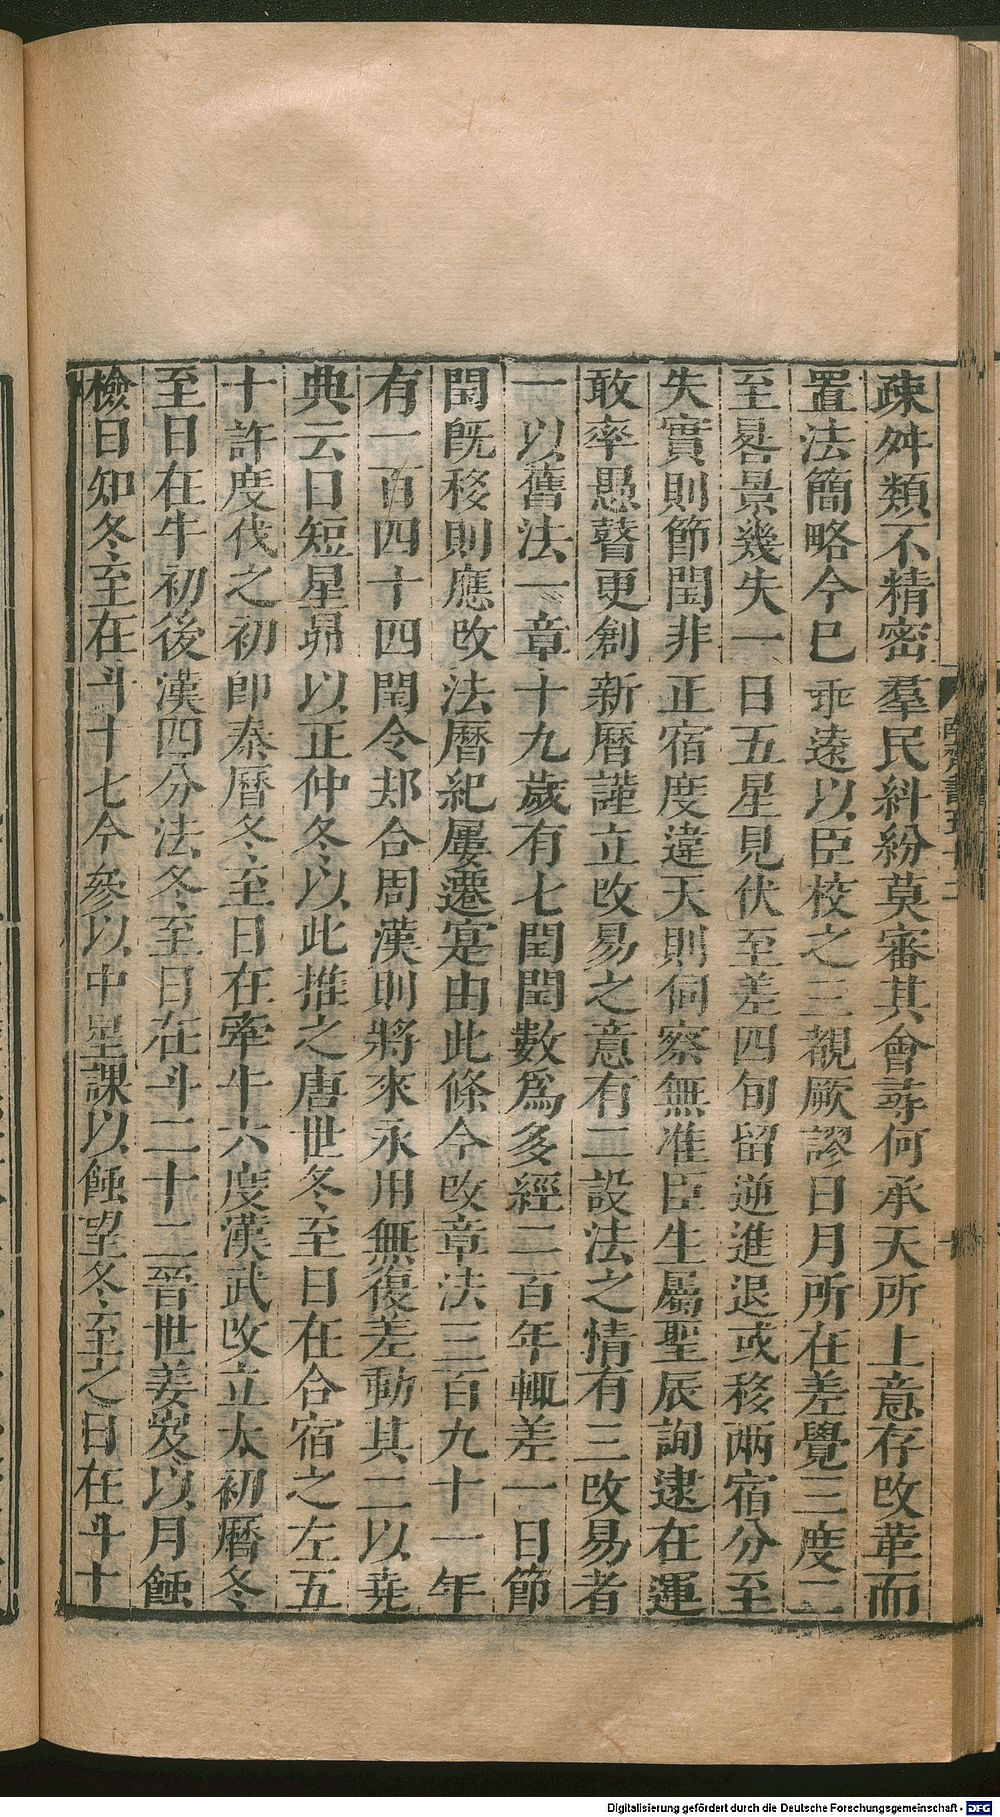 疎舛類不精密羣民糾紛莫審其會尋何承天所上意存改革而
置法簡略今巳乖遠以臣校之三覩厥謬日月所在差覺三度二
至晷景幾失一日五星見伏至差四旬留逆進退或移兩宿分至
失實則節閏非正宿度違天則伺察無准臣生屬聖辰詢逮在運
敢率愚瞽更創新曆謹立改易之意有二設法之情有三改易者
一以舊法一章十九歲有七閏閏數爲多經二百年輒差一日節
閏旣移則應改法曆紀屢遷寔由此條今改章法三百九十一年
有一百四十四閏令却合周漢則將來永用無復差動其二以堯
典云日短星昴以正仲冬以此推之唐世冬至日在今宿之左五
十許度伐之初卽秦曆冬至日在牽牛六度漢武改立太初曆冬
至日在牛初後漢四分法冬至日在斗二十二晉世姜岌以月蝕
檢日知冬至在斗十七今參以中星課以蝕望冬至之日在斗十
南齊書